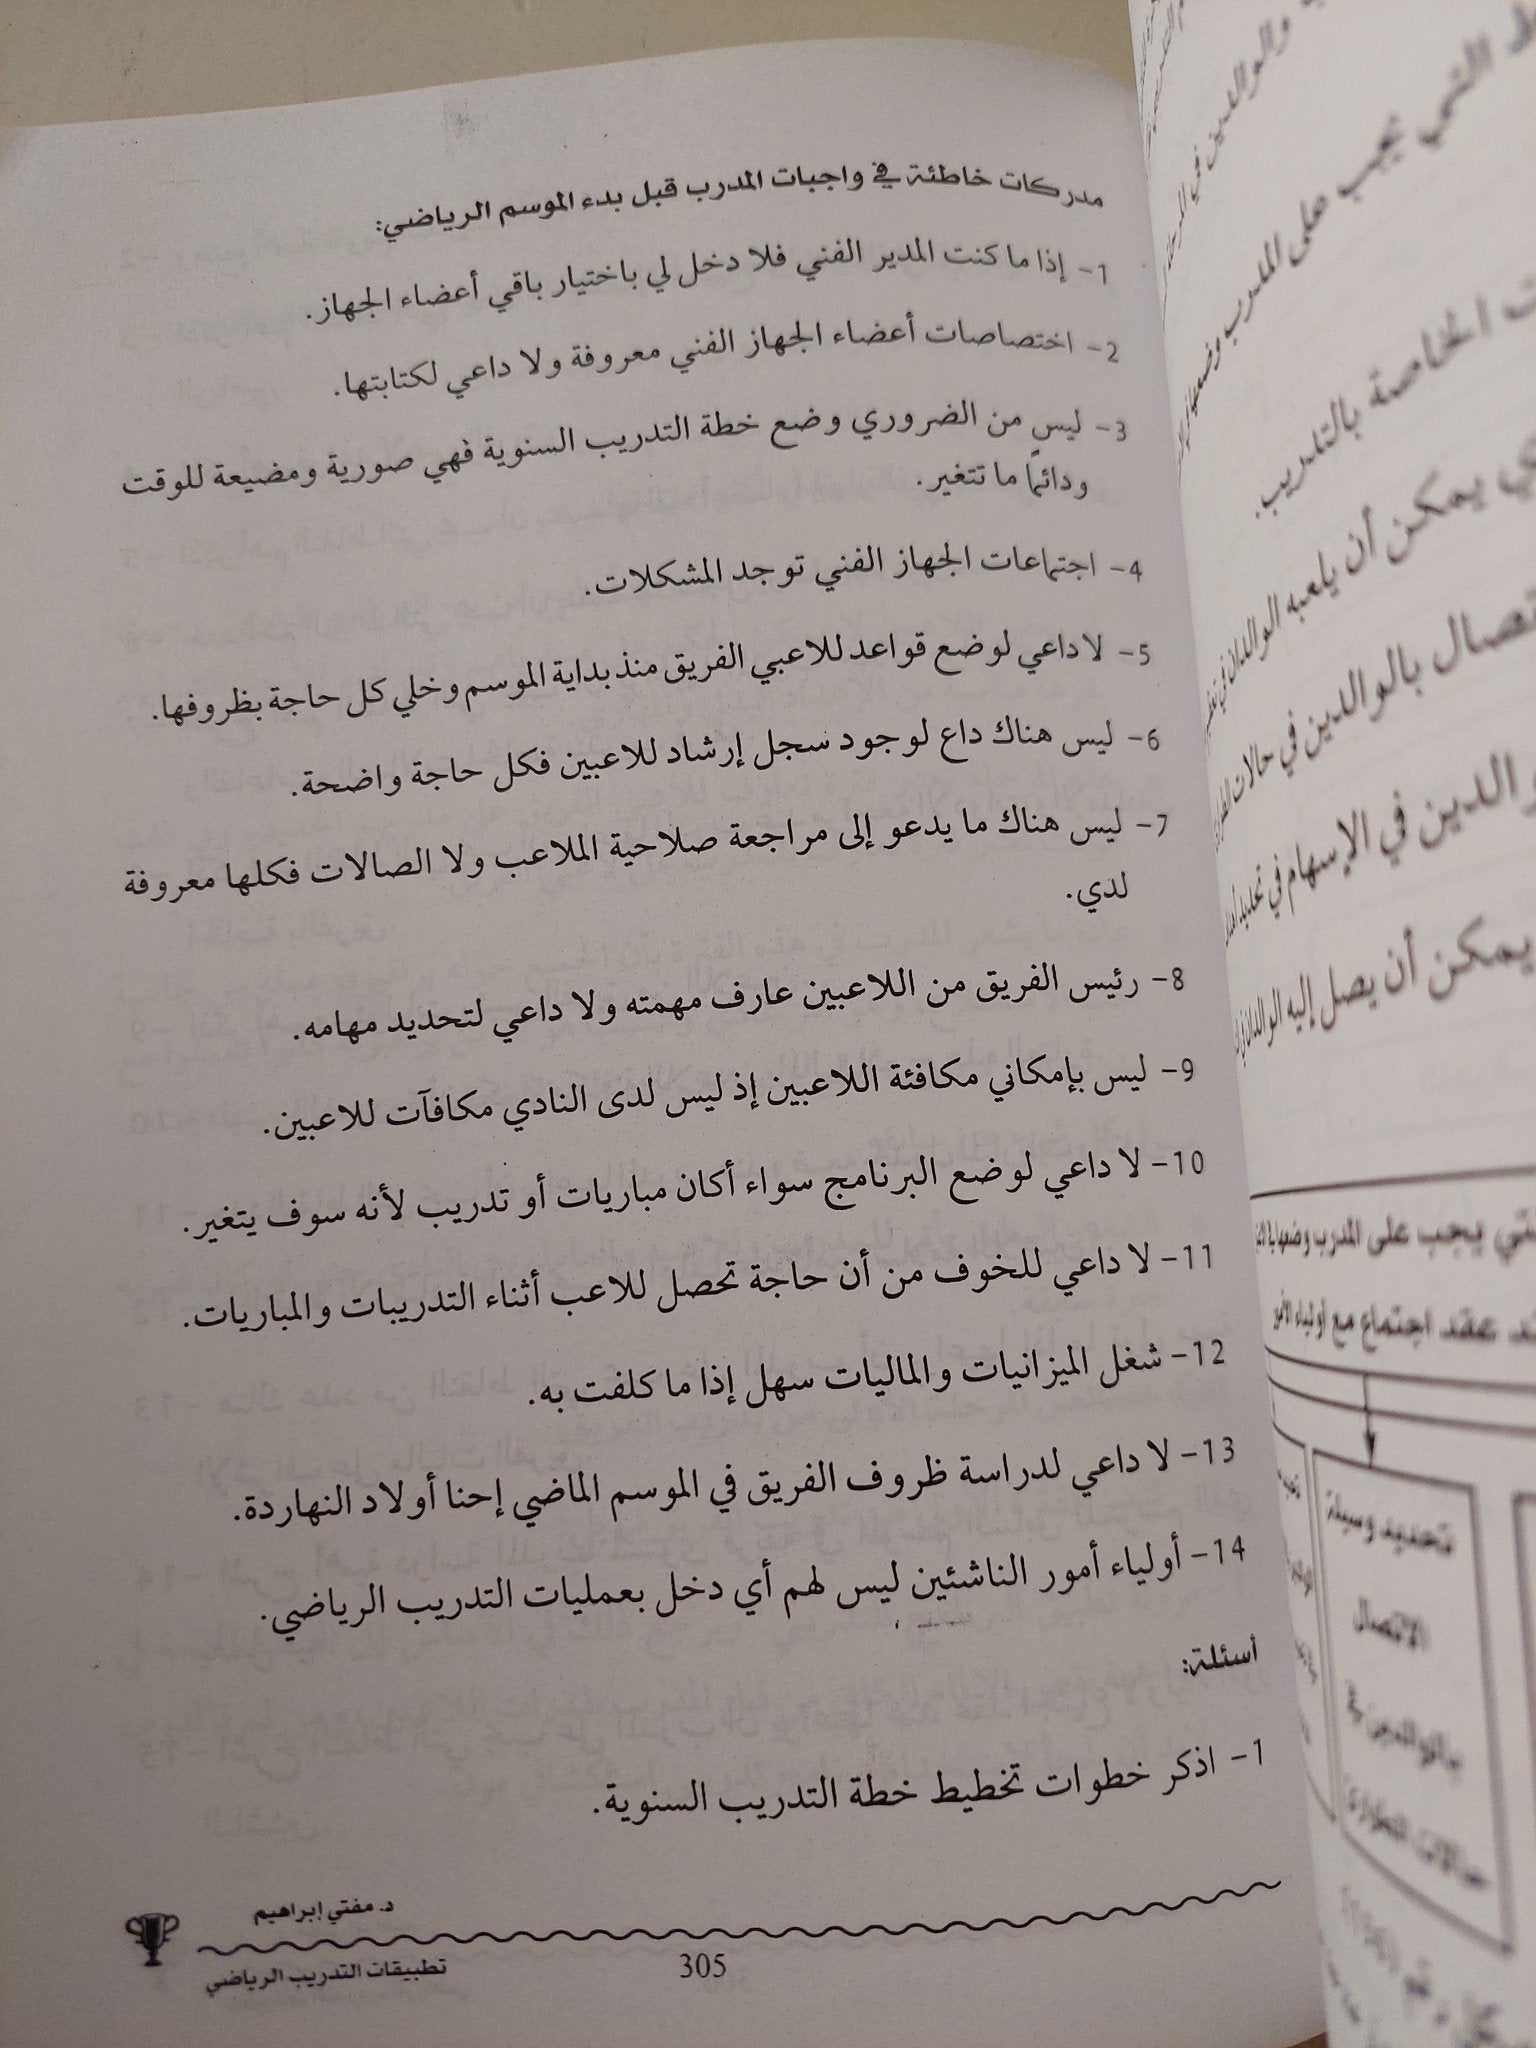 مدركات خاطئة في واجبات المدرب قبل بدء الموسم الرياضي:
1- إذا ما كنت المدير الفني فلا دخل لي باختيار باقي أعضاء الجهاز.
2- اختصاصات أعضاء الجهاز الفني معروفة ولا داعي لكتابتها.
3- ليس من الضروري وضع خطة التدريب السنوية فهي صورية ومضيعة للوقت
ودائمًا ما تتغير.
4- اجتماعات الجهاز الفني توجد المشكلات.
5- لا داعي لوضع قواعد للاعبي الفريق منذ بداية الموسم وخلي كل حاجة بظروفها.
6- ليس هناك داع لوجود سجل إرشاد للاعبين فكل حاجة واضحة.
7- ليس هناك ما يدعو إلى مراجعة صلاحية الملاعب ولا الصالات فكلها معروفة
لدي.
8- رئيس الفريق من اللاعبين عارف مهمته ولا داعي لتحديد مهامه.
9- ليس بإمكاني مكافئة اللاعبين إذ ليس لدى النادي مكافآت للاعبين.
10- لا داعي لوضع البرنامج سواء أكان مباريات أو تدريب لأنه سوف يتغير.
11- لا داعي للخوف من أن حاجة تحصل للاعب أثناء التدريبات والمباريات.
12- شغل الميزانيات والماليات سهل إذا ما كلفت به.
13- لا داعي لدراسة ظروف الفريق في الموسم الماضي إحنا أولاد النهاردة.
14- أولياء أمور الناشئين ليس لهم أي دخل بعمليات التدريب الرياضي.
أسئلة:
1- اذكر خطوات تخطيط خطة التدريب السنوية.
د. مفتي إبراهيم
305
تطبيقات التدريب الرياضي
والوالدين في
التي يجب على المدرب
الخاصة بالتدريب.
يمكن أن يلعبه الوالدان في
بالوالدين في حالات
الدين في الإسهام في تحديد
يمكن أن يصل إليه الوالدان في
يجب على المدرب وضعها في
عقد اجتماع مع أولياء الأمور
تحديد وسيلة
الاتصال
بالوالدين في
حالات الطوارئ